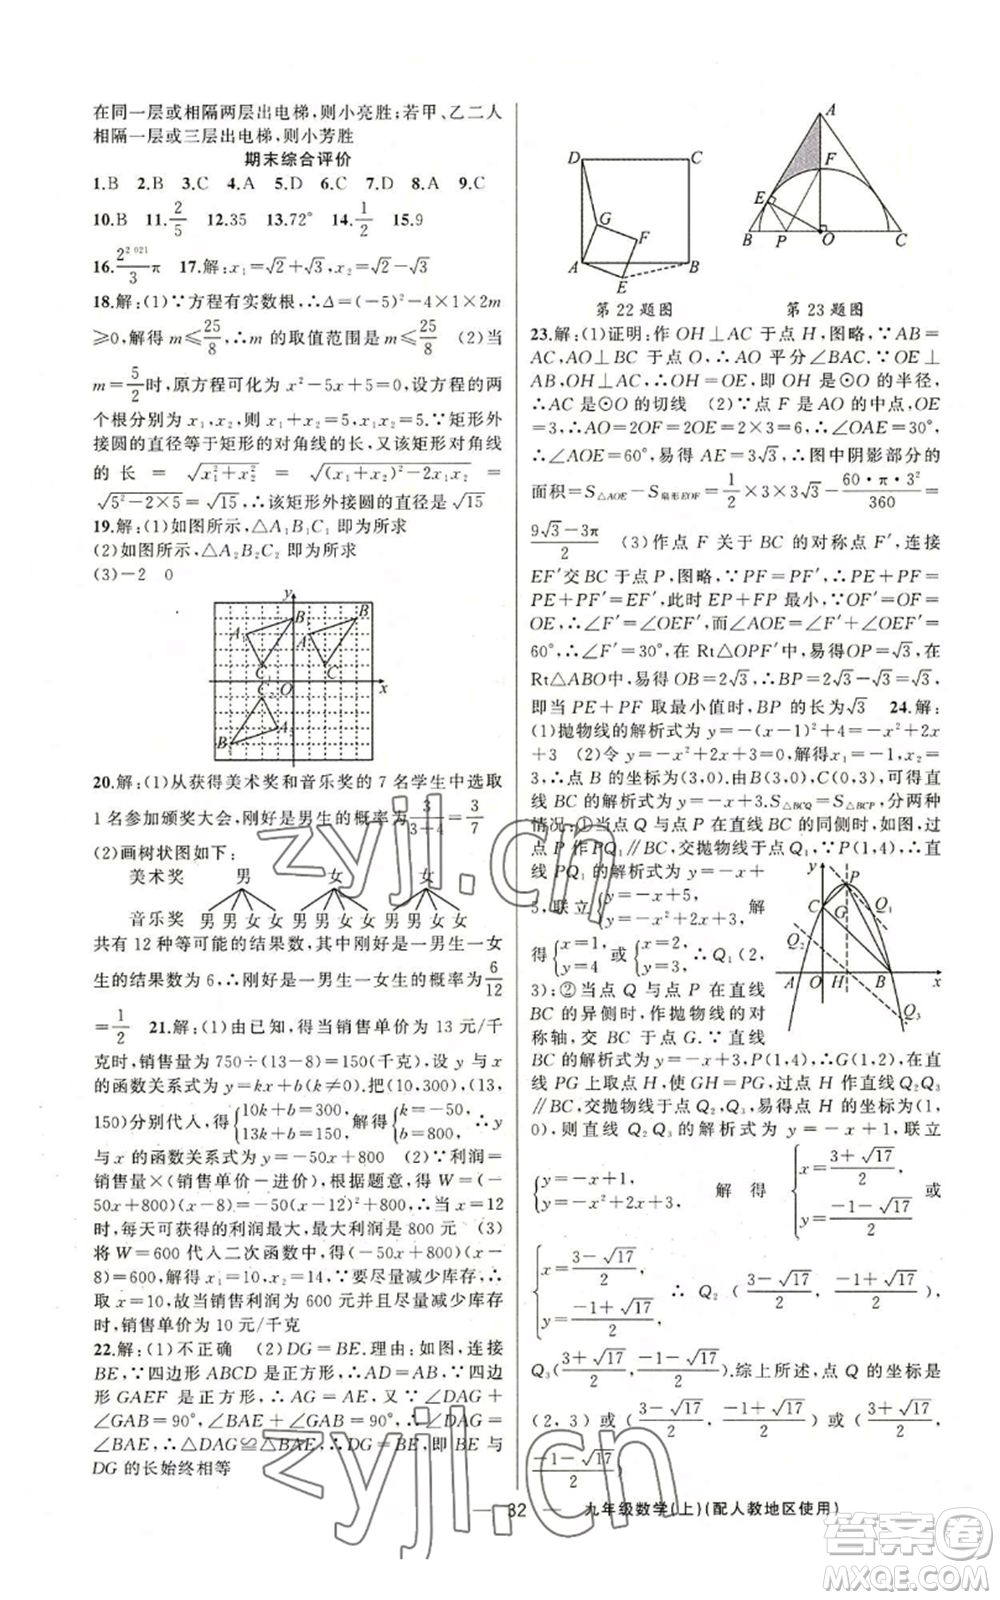 在同一层或相隔两层出电梯,则小亮胜;若甲、乙二人
相隔一层或三层出电梯,则小芳胜
期末综合评价
1.B 2.B 3.C 4.A 5.D 6.C 7.D 8.A 9.C
10.B 11.2/5 12.35 13.72° 14.1/2 15.9
16.2^2 021/3 π 17.解:x₁=√2+√3,x₂=√2-√3
18.解:(1)∵方程有实数根,∴Δ=(-5)²-4×1×2m
≥0,解得 m≤25/8,∴m 的取值范围是 m≤25/8 (2)当
m=5/2时,原方程可化为 x²-5x+5=0,设方程的两
个根分别为 x₁,x₂,则 x₁+x₂=5,x₁x₂=5.∵矩形外
接圆的直径等于矩形的对角线的长,又该矩形对角线
的长=√x₁²+x₂²=√(x₁+x₂)²-2x₁x₂=
√5²-2×5=√15,∴该矩形外接圆的直径是√15
19.解:(1)如图所示,△A₁B₁C₁ 即为所求
(2)如图所示,△A₂B₂C₂ 即为所求
(3)-2 0
y
B₁
B
A₁
A
C₁
C
C₂
O
x
A₂
B₂
20.解:(1)从获得美术奖和音乐奖的 7 名学生中选取
1 名参加颁奖大会,刚好是男生的概率为3/3+4=3/7
(2)画树状图如下:
美术奖 男 女 女
音乐奖 男男女女 男男女女 男男女女
共有 12 种等可能的结果数,其中刚好是一男生一女
生的结果数为 6,∴刚好是一男生一女生的概率为6/12
=1/2 21.解:(1)由已知,得当销售单价为 13 元/千
克时,销售量为 750÷(13-8)=150(千克),设 y 与 x
的函数关系式为 y=kx+b(k≠0),把(10,300),(13,
150)分别代入,得{10k+b=300,13k+b=150,解得{k=-50,b=800,∴y
与 x 的函数关系式为 y=-50x+800 (2)∵利润=
销售量×(销售单价-进价),根据题意,得 W=(-
50x+800)(x-8)=-50(x-12)²+800,∴当 x=12
时,每天可获得的利润最大,最大利润是 800 元 (3)
将 W=600 代入二次函数中,得(-50x+800)(x-
8)=600,解得 x₁=10,x₂=14,∵要尽量减少库存,∴
取 x=10,故当销售利润为 600 元并且尽量减少库存时,
销售单价为 10 元/千克
22.解:(1)不正确 (2)DG=BE.理由:如图,连接
BE,∵四边形 ABCD 是正方形,∴AD=AB,∵四边
形 GAEF 是正方形,∴AG=AE,又∵∠DAG+
∠GAB=90°,∠BAE+∠GAB=90°,∴∠DAG=
∠BAE,∴△DAG≌△BAE,∴DG=BE,即 BE 与
DG 的长始终相等
D
C
G
F
A
B
E
第 22 题图
A
F
E
B
P
O
C
第 23 题图
23.解:(1)证明:作 OH⊥AC 于点 H,图略,∵AB=
AC,AO⊥BC 于点 O,∴AO 平分∠BAC.∵OE⊥
AB,OH⊥AC,∴OH=OE,即 OH 是⊙O 的半径,
∴AC 是⊙O 的切线 (2)∵点 F 是 AO 的中点,OE
=3,∴AO=2OF=2OE=2×3=6,∴∠OAE=30°,
∴∠AOE=60°,易得 AE=3√3,∴图中阴影部分的
面积=S△AOE-S扇形EOF=1/2×3×3√3-60·π·3²/360=
9√3-3π/2 (3)作点 F 关于 BC 的对称点 F′,连接
EF′交 BC 于点 P,图略,∵PF=PF′,∴PE+PF=
PE+PF′=EF′,此时 EP+FP 最小,∵OF′=OF=
OE,∴∠F′=∠OEF′,而∠AOE=∠F′+∠OEF′=
60°,∴∠F′=30°,在 Rt△OPF′中,易得OP=√3,在
Rt△ABO中,易得 OB=2√3,∴BP=2√3-√3=√3,
即当 PE+PF 取最小值时,BP 的长为√3 24.解:
(1)抛物线的解析式为 y=-(x-1)²+4=-x²+2x
+3 (2)令 y=-x²+2x+3=0,解得x₁=-1,x₂=
3,∴点 B 的坐标为(3,0),由 B(3,0),C(0,3),可得直
线 BC 的解析式为 y=-x+3,S△BCQ=S△BCP,分两种
情况:①当点 Q 与点 P 在直线 BC 的同侧时,如图,过
点 P 作 PQ₁∥BC,交抛物线于点 Q₁,∵P(1,4),∴直
线 PQ₁ 的解析式为 y=-x+
5,联立{y=-x+5,y=-x²+2x+3,解
得{x=1,y=4 或{x=2,y=3,∴Q₁(2,
3);②当点 Q 与点 P 在直线
BC 的异侧时,作抛物线的对
称轴,交 BC 于点 G.∵直线
BC 的解析式为 y=-x+3,P(1,4),∴G(1,2),在
直线 PG 上取点 H,使 GH=PG,过点 H 作直线 Q₂Q₃
∥BC,交抛物线于点 Q₂,Q₃,易得点 H 的坐标为(1,
0),则直线 Q₂Q₃ 的解析式为 y=-x+1,联立
{y=-x+1,y=-x²+2x+3,解得{x=3+√17/2,y=-1-√17/2 或
{x=3-√17/2,y=-1+√17/2,∴Q₂(3-√17/2,-1+√17/2),
Q₃(3+√17/2,-1-√17/2).综上所述,点 Q 的坐标是
(2,3)或(3-√17/2,-1+√17/2)或(3+√17/2,
-1-√17/2)
y
P
C
G
Q₁
Q₂
A
O
H
B
x
Q₃
32
九年级数学(上)(配人教地区使用)
zyjl.cn
zyjl.cn
答案圈
MXQE.COM